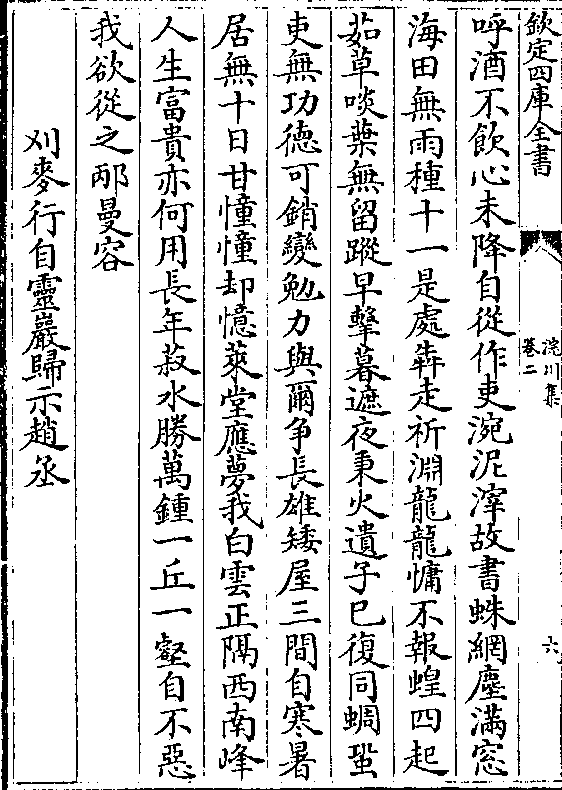 欽定四庫全書
浣川集
卷二
六
呼酒不飲心未降自從作吏涴泥滓故書蛛網塵滿窓
海田無雨種十一是處犇走祈淵龍龍慵不報蝗四起
茹草啖葉無留蹤早擊暮遮夜秉火遺子已復同蜩蛩
吏無功德可銷變勉力與爾争長雄矮屋三間自寒暑
居無十日甘憧憧却憶萊堂應夢我白雲正隔西南峰
人生富貴亦何用長年菽水勝萬鍾一丘一壑自不惡
我欲從之邴曼容
刈麥行自靈巖歸示趙丞